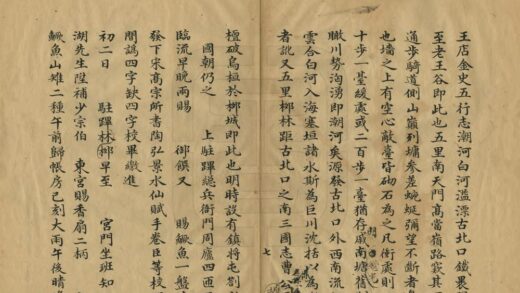 王店金史五行志潮河白河濫漂古北口鐵裹
至老王谷即此也五里南天門高當嶺路嵌其
通步騎道側山巔列墉參差蜿蜒彌望不斷者
也墻之上有空心敵臺皆砌石為之凡衝處則
十步一臺緩處或二百步一臺猶存戚南塘舊
瞰川勢洶湧即潮河矣源發古北口外西南流
雲合白河入海塞垣諸水斯為巨川沈括以為
者訛又五里栁林距古北口之南三國志曹公
七
檀破烏桓於栁城即此也明時設有鎮將屯劄
國朝仍之 上駐蹕總兵衙門周廬四匝
臨流早晚兩賜 御饌又 賜鱖魚一盤
發下宋高宗所書陶弘景水仙賦手卷臣等校
閱譌四字缺四字校畢繳進
初二日 駐蹕栁林早至 宮門坐班知
湖先生陞補少宗伯 東宮賜香扇二柄
鱖魚山雉二種午前歸帳房已刻大雨午後晴